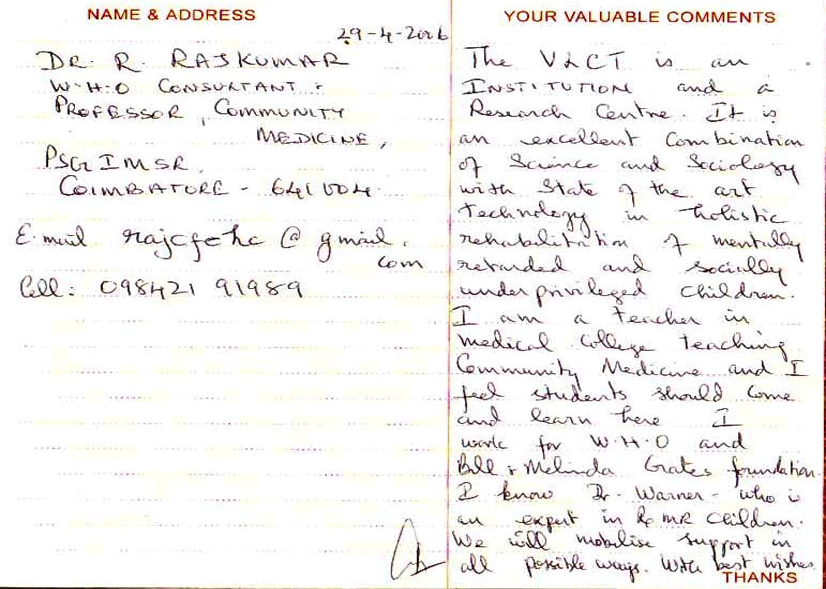 NAME & ADDRESS
29-4-2006
DR. R. RAJKUMAR
W.H.O CONSULTANT &
PROFESSOR, COMMUNITY
MEDICINE,
PSG IMSR,
COIMBATORE - 641004.
E.mail @ gmail.
com
Cell: 098421 91989
YOUR VALUABLE COMMENTS
The is an
INSTITUTION and a
Research Centre. It is
an excellent Combination
of Science and Sociology
with State of the art
technology in holistic
rehabilitation of mentally
retarded and socially
underprivileged children.
I am a teacher in
medical college teaching
Community Medicine and I
feel students should come
and learn here I
work for W.H.O and
Bill & Melinda Gates foundation.
I know Dr. Warner - who is
an expert in MR children.
We will mobilise support in
all possible ways. With best wishes.
THANKS